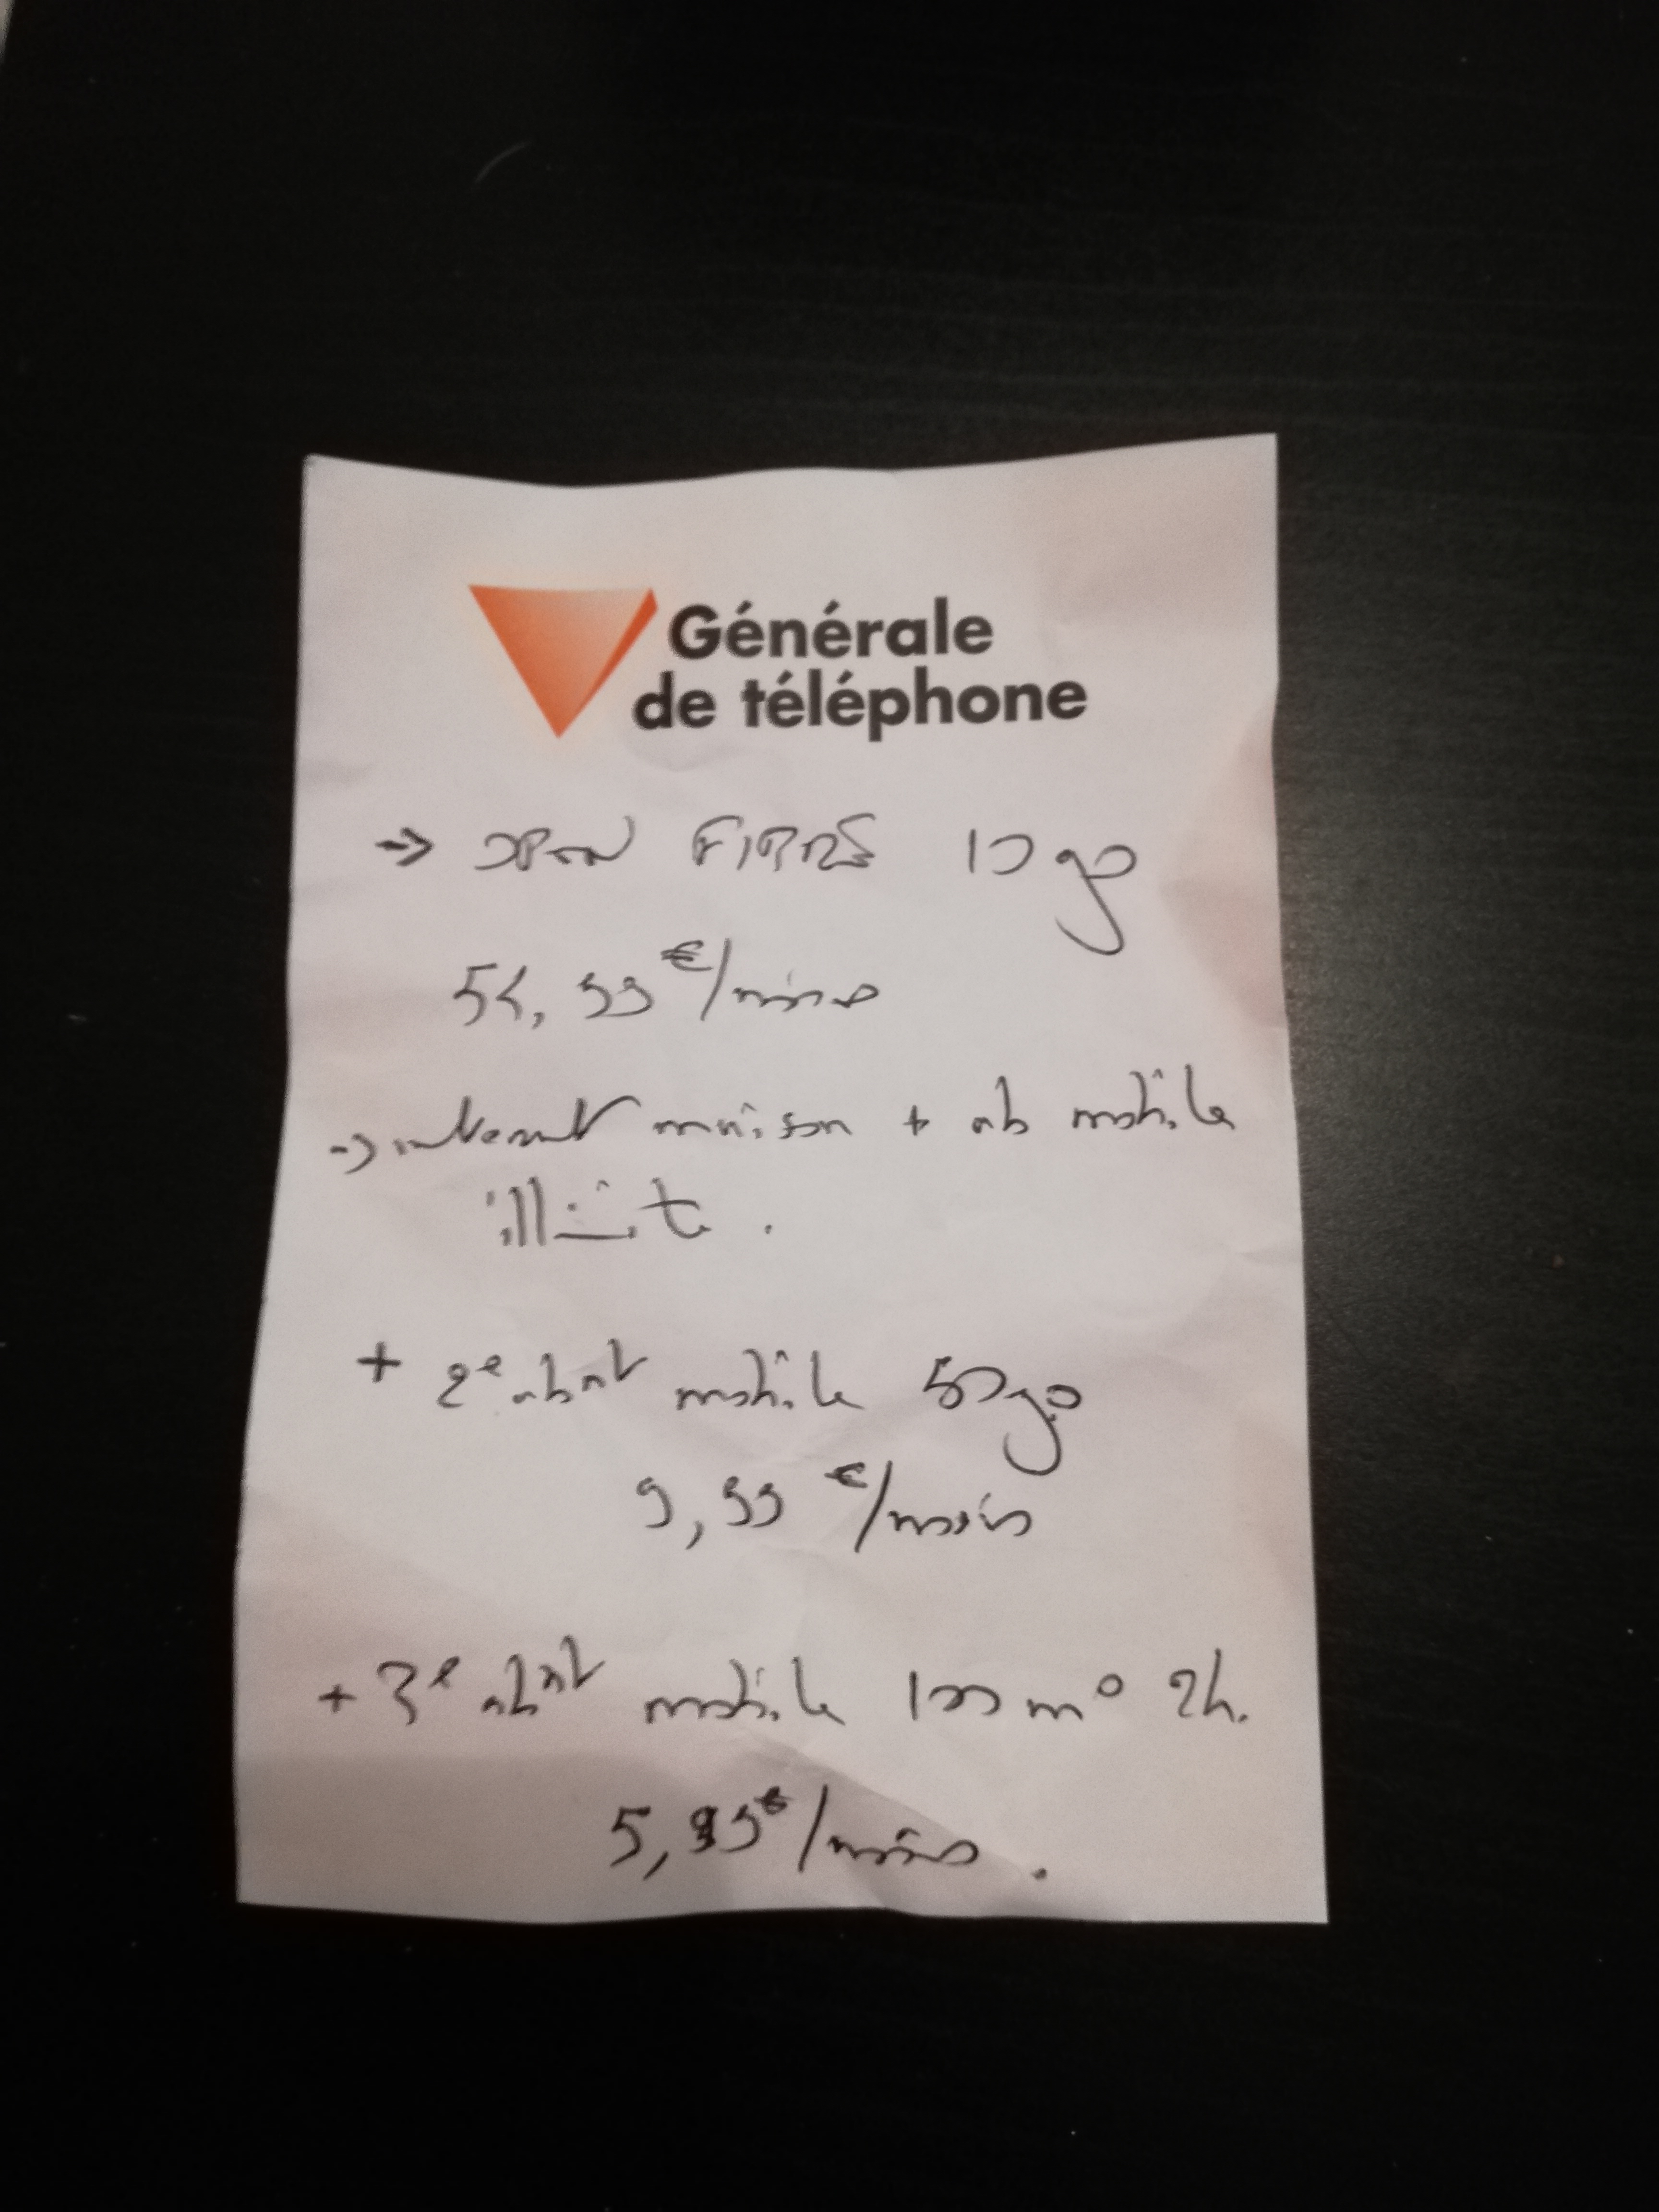 Générale
de téléphone
→ OPEN FIBRE 10 go
54,99 €/mois
→ internet maison + ab mobile
illimité.
+ 2e abnt mobile 50go
9,99 €/mois
+ 3e abnt mobile 100 mo 2h.
5,99€/mois.